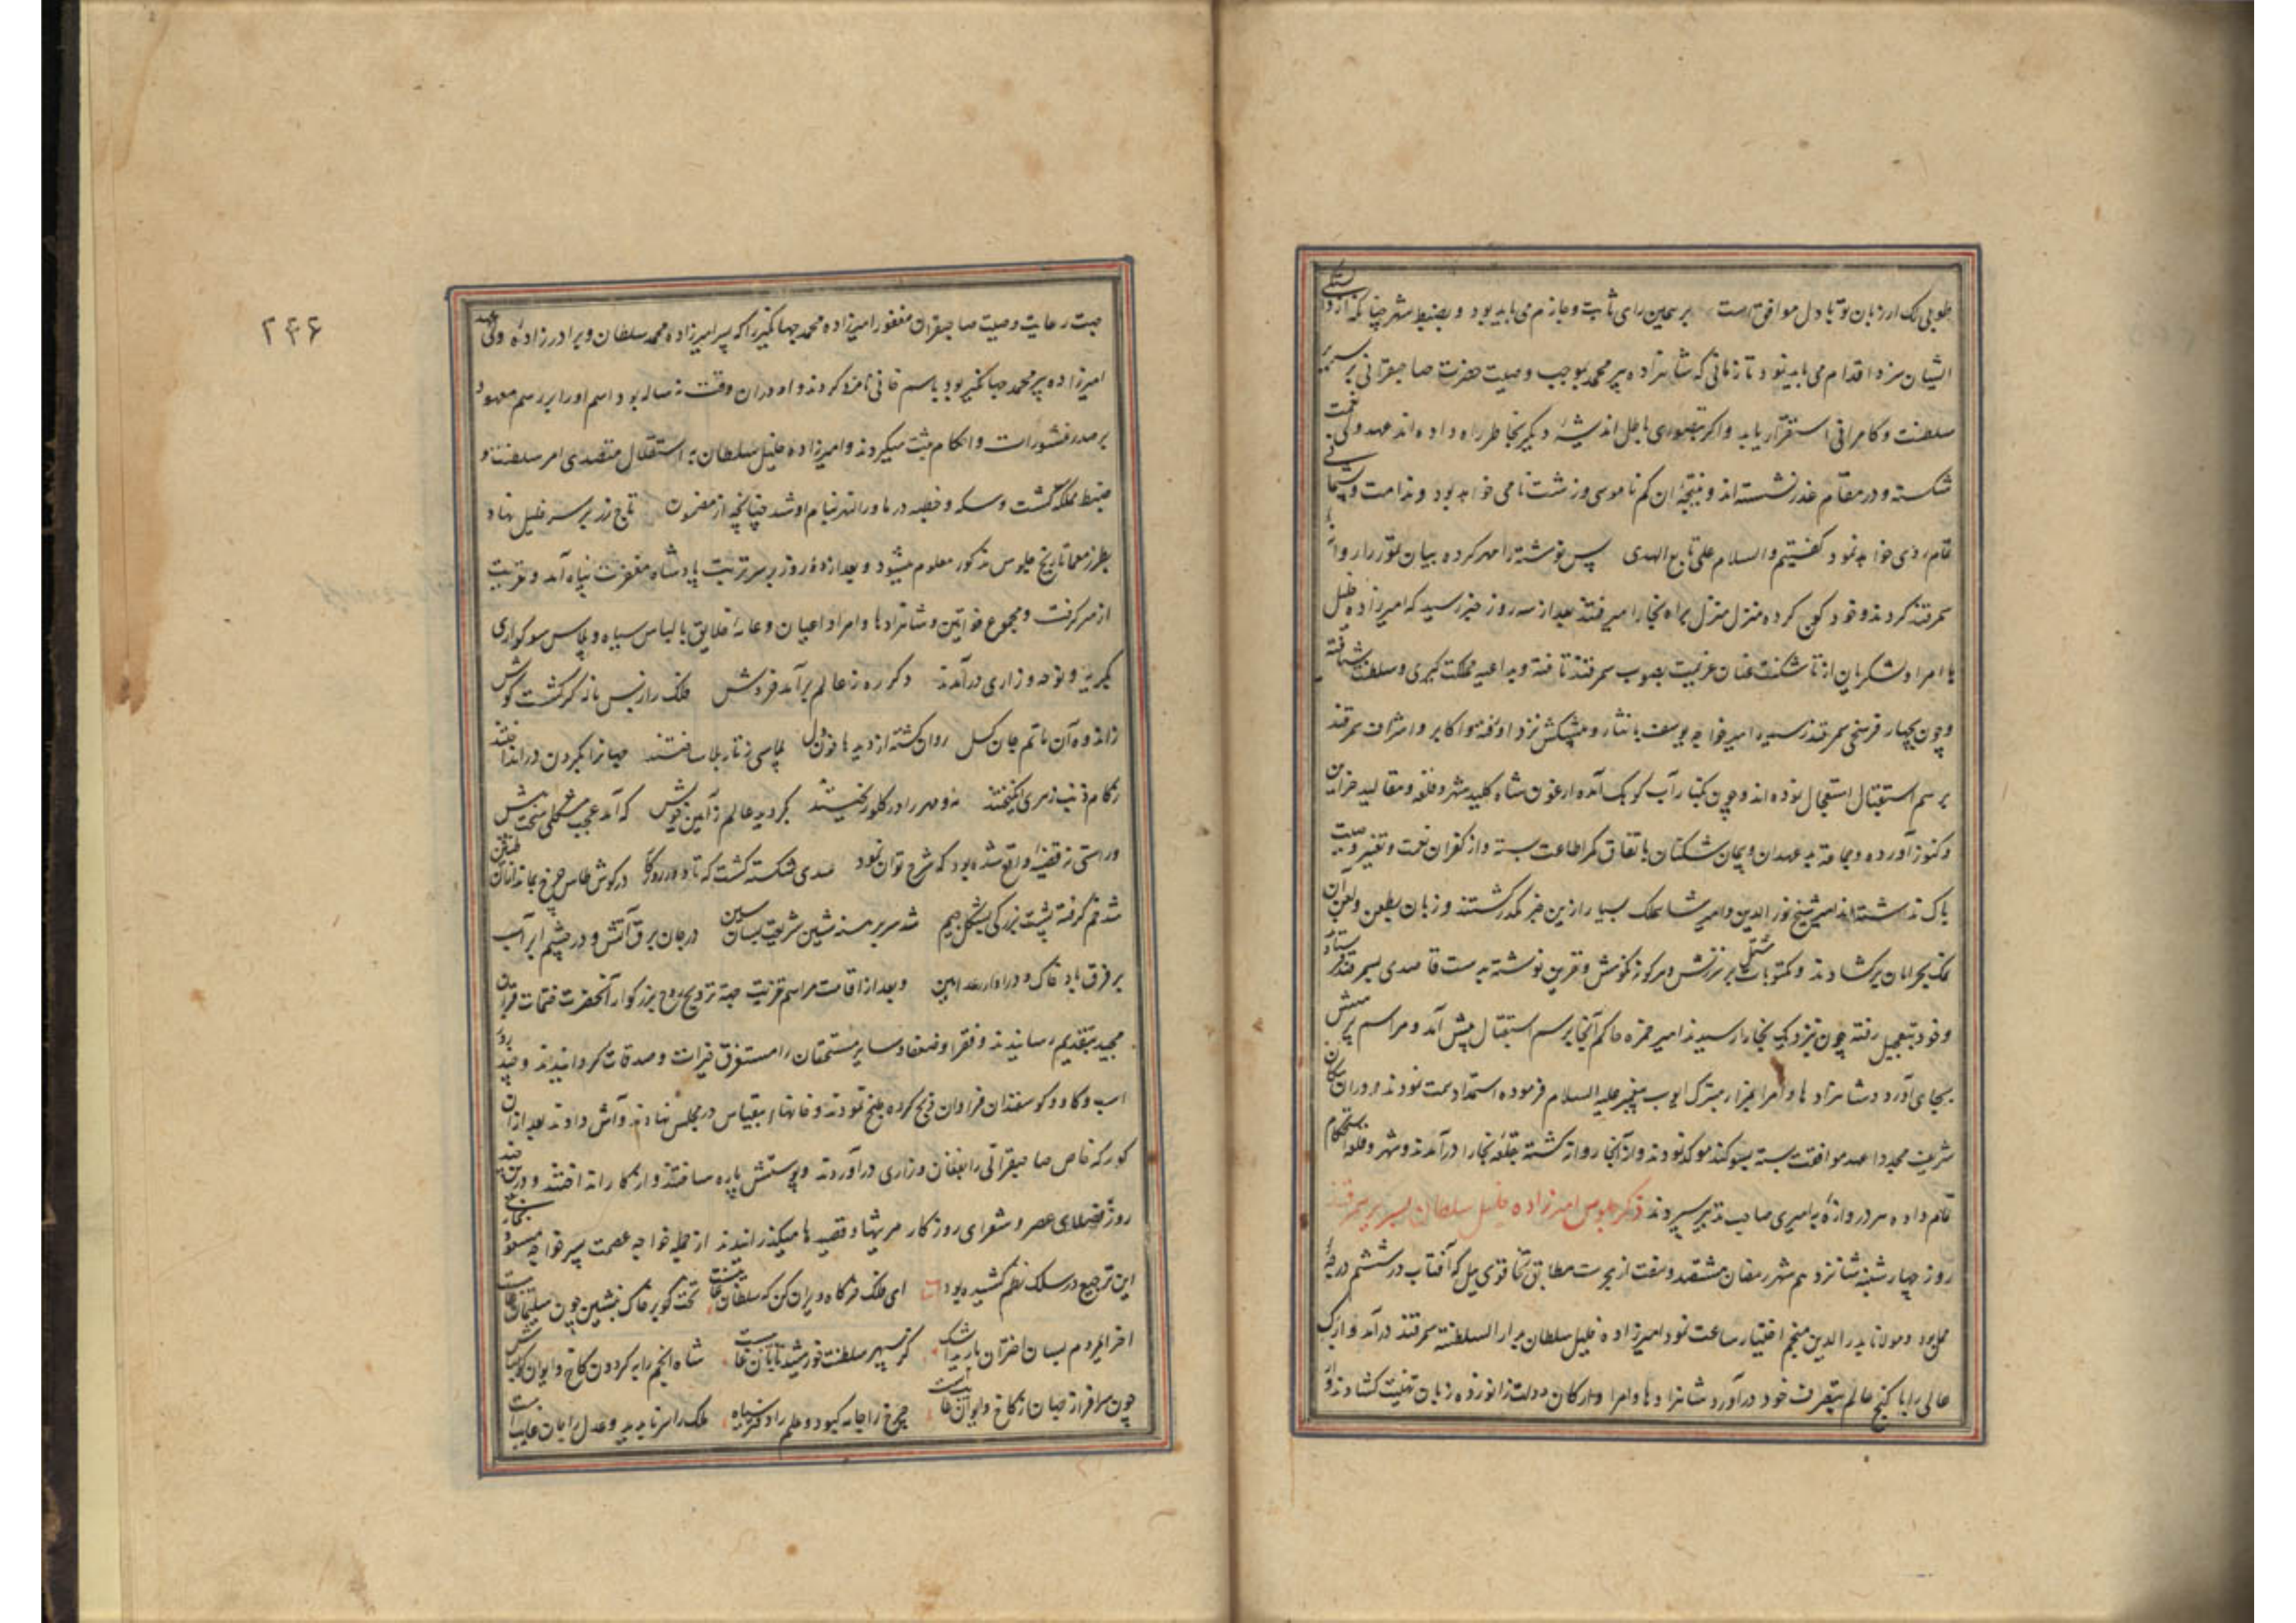 طوبی لک ار زبان تو با دل موافق است بر همین رای ثابت و جازم می باید بود و بضبط شهر چنانکه از
ایشان سزد اقدام می باید نمود تا زمانی که شاهزاده پیر محمد بموجب وصیت حضرت صاحبقرانی بر سریر
سلطنت و کامرانی استقرار یابد و اگر بتصوری باطل اندیشهٔ دیگر بخاطر راه داده اند عهد ولی نعمت
شکسته و در مقام غدر نشسته اند و نتیجهٔ آن کم ناموسی و زشت نامی خواهد بود و ندامت و پشیمانی
خواهد نمود گفتیم والسلام علی تابع الهدی پس نوشته را مهر کرده
سمرقند کردند و خود کوچ کرده منزل منزل براه بخارا میرفتند بعد از سه روز خبر رسید که امیرزاده خلیل
با امرا و لشکریان از تاشکنت عنان عزیمت بصوب سمرقند تافته و بداعیه مملکت گیری و سلطنت شتافته
و چون بچهار فرسخی سمرقند رسید امیر خواجه یوسف با نثار و پیشکش نزد او رفته و اکابر و اشراف سمرقند
برسم استقبال استعجال نموده اند و چون بکنار آب کوهک آمده ارغون شاه کلید شهر و قلعه و مقالید خزاین
و کنوز آورده و جماعته بد عهدان و پیمان شکنان باتفاق کمر اطاعت بسته و از کفران نعمت و تغییر وصیت
باک نداشته اند امیر شیخ نور الدین و امیر شاهملک بسیار ازین خبر مکدر گشتند و زبان بطعن و لعن آن
نمک بحرامان برگشادند و مکتوبات مشتمل بر سرزنش و مرکوز نکوهش و نفرین نوشته بدست قاصدی بسمرقند فرستاد
و خود بتعجیل رفته چون نزدیک بخارا رسیدند امیر حمزه حاکم آنجا برسم استقبال پیش آمد و مراسم پرسش
بجای آورد و شاهزادها و امرا بمزار متبرک ایوب پیغمبر علیه السلام فرموده استمداد همت نمودند و در آن مکان
شریف مجددا عهد موافقت بسته بسوگند موکد نمودند و از آنجا روانه گشته بقلعه بخارا درآمدند و شهر و قلعه استحکام
تمام داده هر دروازهٔ به امیری صاحب تدبیر سپردند ذکر جلوس امیرزاده خلیل سلطان بسریر سمرقند
روز چهار شنبه شانزدهم شهر رمضان هشتصد و هفت از هجرت مطابق تخاقوی ئیل که آفتاب در ششم درجهٔ
حمل بود و مولانا بدر الدین منجم اختیار ساعت نمود امیرزاده خلیل سلطان بدار السلطنه سمرقند درآمد و ارک
عالی را با گنج عالم بتصرف خود درآورد شاهزادها و امرا و ارکان دولت زانو زده زبان تهنیت گشادند و از
۲۴۶
جهت رعایت وصیت صاحبقران مغفور امیرزاده محمد جهانگیر را که پسر امیرزاده محمد سلطان و برادرزادهٔ ولی عهد
امیرزاده پیر محمد جهانگیر بود باسم خانی نامزد کردند و او در آن وقت نه ساله بود و اسم او را بر رسم معهود
بر صدر منشورات و احکام ثبت میکردند و امیرزاده خلیل سلطان به استقلال متصدی امر سلطنت و
ضبط مملکت گشت و سکه و خطبه در ماوراالنهر بنام او شد چنانچه از مضمون تاج زر بر سر خلیل نهاد
بطرز معما تاریخ جلوس مذکور معلوم میشود و بعد از دو روز بر سر تربت پادشاه مغفرت پناه آمد و تعزیت
از سر گرفت و مجموع خواتین و شاهزادها و امرا و اعیان و عامهٔ خلایق با لباس سیاه و پلاس سوگواری
بگریه و نوحه و زاری درآمدند دگر ره ز عالم برآمد خروش فلک را ز بس ناله کر گشت گوش
ز اندوه آن ماتم جان گسل روان گشته از دیدها خون دل پلاسی ز تار بلا ساختند جهانرا بگردن در انداختند
ز کام ذنب زهر انگیختند مه و مهر را در گلو ریختند بگردید عالم ز آیین خویش که آمد عجب مشکلی سخت پیش
و راستی نه قضیهٔ واقع شده بود که شرح توان نمود سدی شکسته گشت که تا دور روزگار در گوش طاس چرخ بماند از آن طنین
شد خم گرفته پشت بزرگی بشکل جیم شد سر برهنه شین شریعت بسان سین در جان برق آتش و در چشم ابر آب
بر فرق باد خاک و در آواز رعد انین و بعد از اقامت مراسم تعزیت جهة ترویح روح بزرگوار آنحضرت ختمات قران
مجید بتقدیم رسانیدند و فقرا و ضعفا و سایر مستحقان را مستغرق خیرات و صدقات گردانیدند و چند روز
اسب و گاو و گوسفندان فراوان ذبح کرده طبخ نمودند و خانهاء بیقیاس در مجلس نهادند و آش دادند بعد از آن
کورکه خاص صاحبقرانی را بفغان و زاری درآوردند و پوستش پاره ساختند و از کار انداختند و درین چند
روز فضلای عصر و شعرای روزگار مرثیها و قصیدها میگذرانیدند از جمله خواجه عصمت پسر خواجه مسعود بخاری
این ترجیع در سلک نظم کشیده بود ای فلک خرگاه ویران کن که سلطان غایبست تخت گو بر خاک بنشین چون سلیمان غایبست
اختران بارید اشک کز سپهر سلطنت خورشید تابان غایبست شاه انجم را به گردون کاخ و ایوان گو مباش
چون سرافراز جهان از کاخ و ایوان غایبست چرخ را جامه کبود و علم را دفتر سیاه ملک را سر ناپدید و عدل را جان غایبست